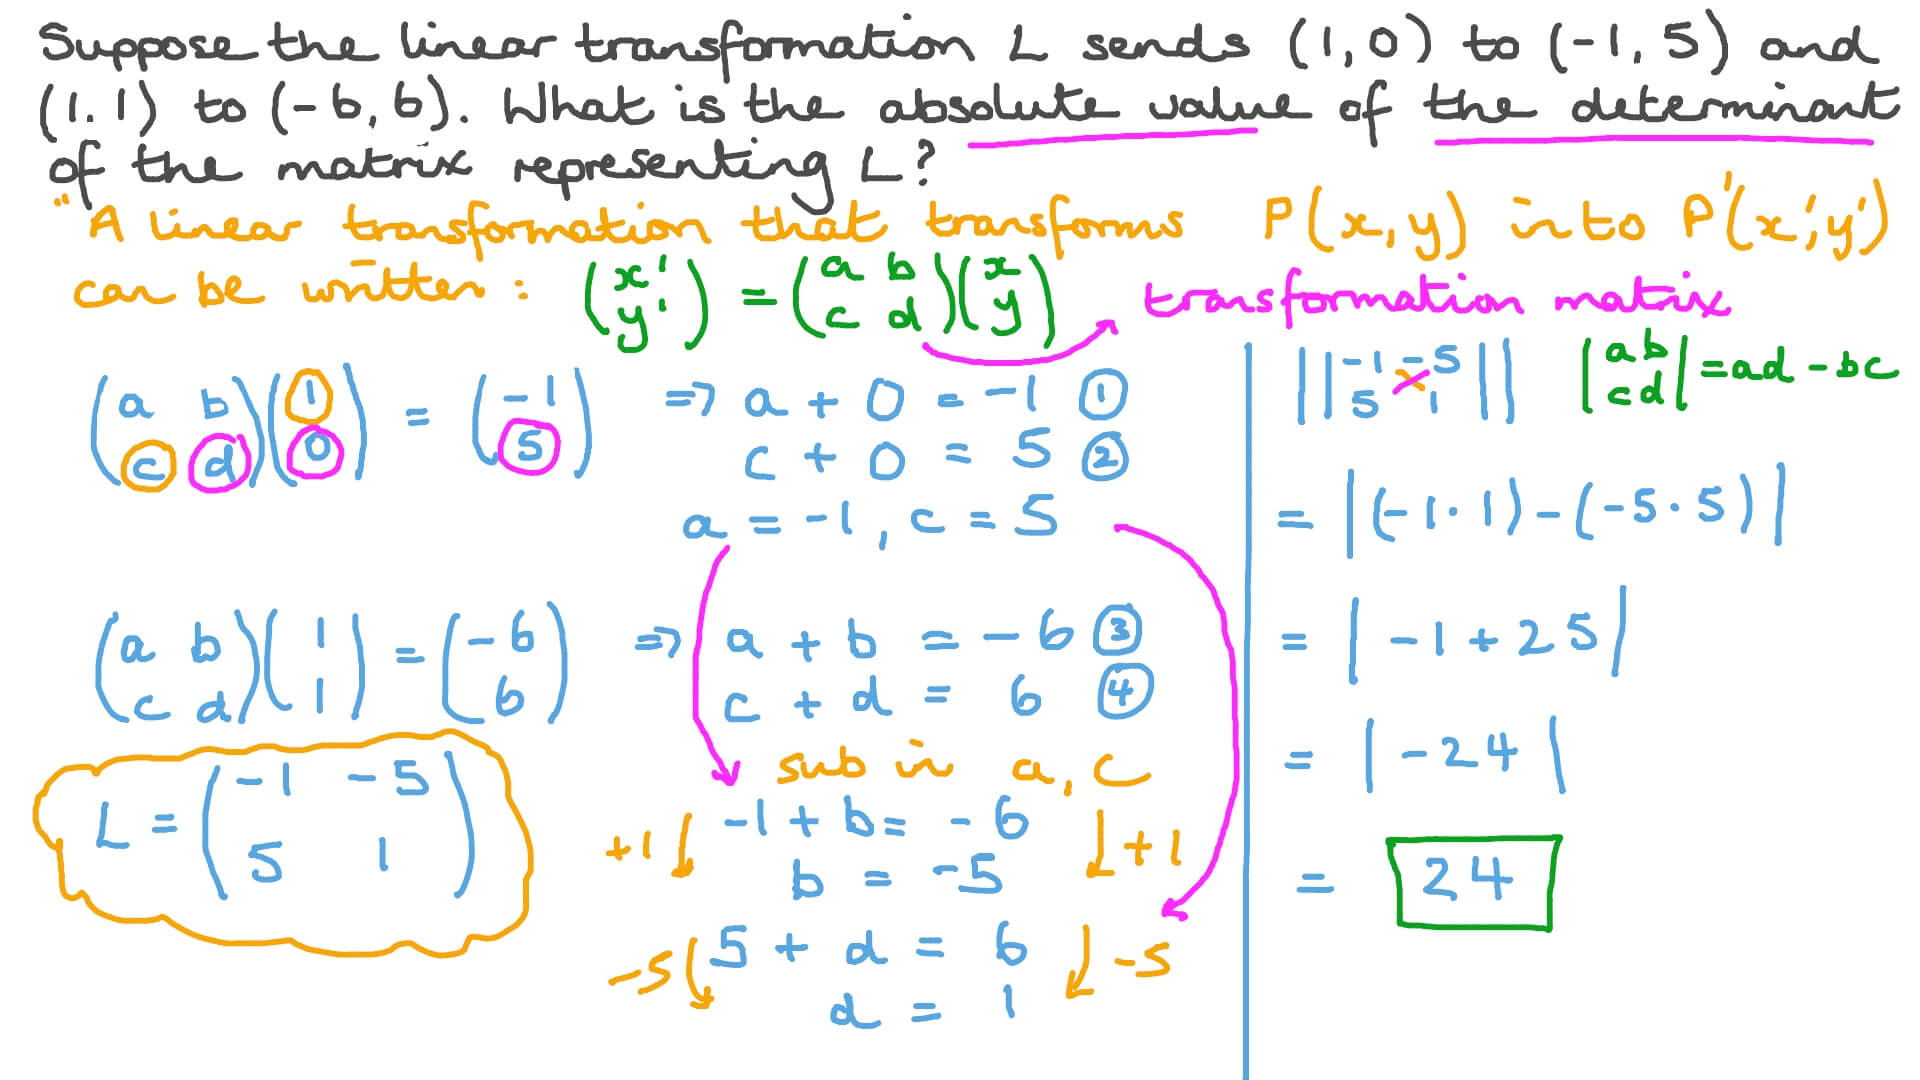 Suppose the linear transformation L sends (1,0) to (-1, 5) and
(1.1) to (-6,6). What is the absolute value of the determinant
of the matrix representing L?
"A linear transformation that transforms P(x,y) into P'(x',y')
can be written: (x' y') = (a b c d)(x y)
transformation matrix
(a b c d)(1 0) = (-1 5) => a + 0 = -1 ①
c + 0 = 5 ②
a = -1, c = 5
(a b c d)(1 1) = (-6 6) => a + b = -6 ③
c + d = 6 ④
sub in a, c
+1 ↓ -1 + b = -6 ↓ +1
b = -5
-5 ↓ 5 + d = 6 ↓ -5
d = 1
L = (-1 -5 5 1)
||-1 -5 5 1|| |a b c d| = ad - bc
= |(-1·1)-(-5·5)|
= |-1+25|
= |-24|
= 24